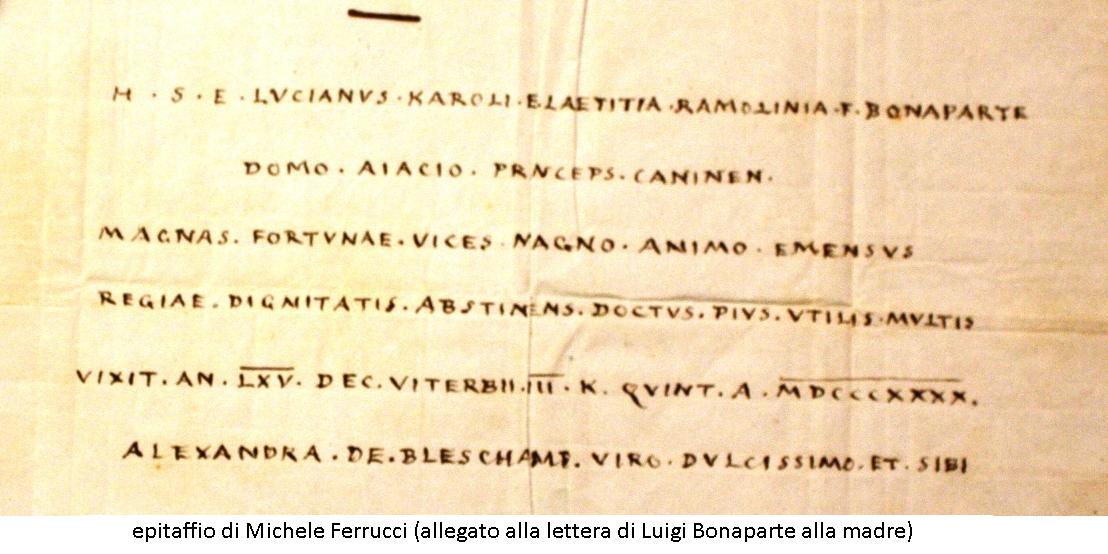 H · S · E · LVCIANVS · KAROLI · E LAETITIA · RAMOLINIA · F · BONAPARTE
DOMO · AIACIO · PRNCEPS · CANINEN.
MAGNAS. FORTVNAE. VICES NAGNO. ANIMO. EMENSVS
REGIAE. DIGNITATIS. ABSTINENS. DOCTVS. PIVS. VTILIS MVLTIS
VIXIT. AN. LXV. DEC. VITERBII. III. K. QVINT. A. MDCCCXXXX.
ALEXANDRA. DE. BLESCHAMP. VIRO. DVLCISSIMO. ET. SIBI
epitaffio di Michele Ferrucci (allegato alla lettera di Luigi Bonaparte alla madre)